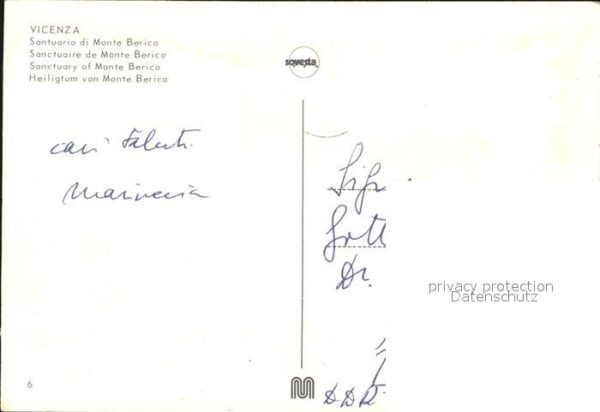 VICENZA
Santuario di Monte Berico
Sanctuaire de Monte Berico
Sanctuary of Monte Berico
Heiligtum von Monte Berico
sovesta
cari saluti
Dr.
privacy protection
Datenschutz
DDR
6